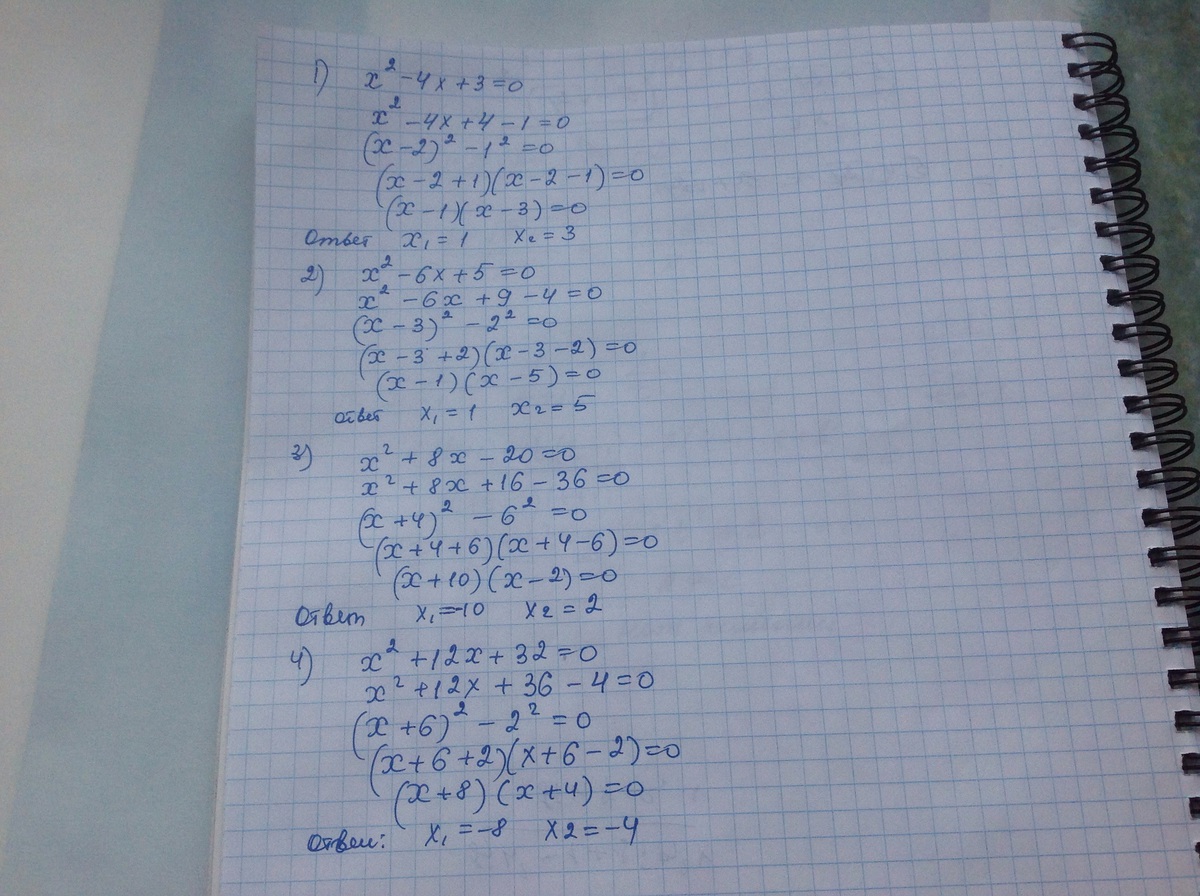 1) x² - 4x + 3 = 0
x² - 4x + 4 - 1 = 0
(x - 2)² - 1² = 0
(x - 2 + 1)(x - 2 - 1) = 0
(x - 1)(x - 3) = 0
Ответ x₁ = 1 x₂ = 3
2) x² - 6x + 5 = 0
x² - 6x + 9 - 4 = 0
(x - 3)² - 2² = 0
(x - 3 + 2)(x - 3 - 2) = 0
(x - 1)(x - 5) = 0
ответ x₁ = 1 x₂ = 5
3) x² + 8x - 20 = 0
x² + 8x + 16 - 36 = 0
(x + 4)² - 6² = 0
(x + 4 + 6)(x + 4 - 6) = 0
(x + 10)(x - 2) = 0
Ответ x₁ = -10 x₂ = 2
4) x² + 12x + 32 = 0
x² + 12x + 36 - 4 = 0
(x + 6)² - 2² = 0
(x + 6 + 2)(x + 6 - 2) = 0
(x + 8)(x + 4) = 0
Ответ: x₁ = -8 x2 = -4